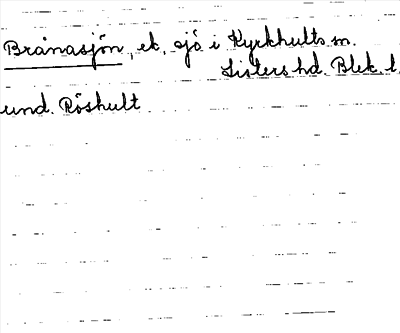 Brånasjön, ek. sjö i Kyrkhults sn.
Listers hd. Blek. l.
und. Röshult